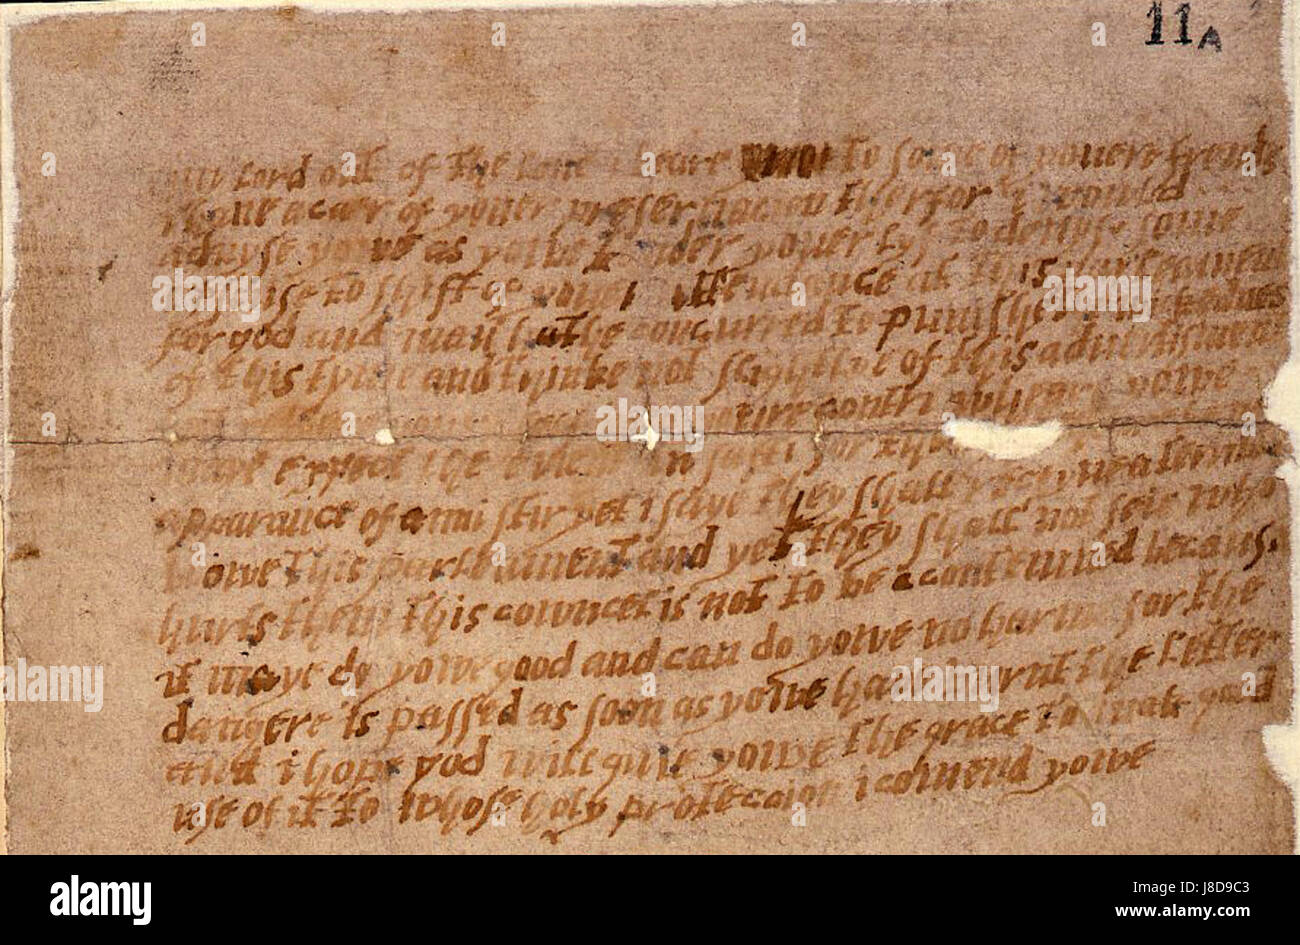 11A
my lord out of the love i beare to some of youere frends
i have a caer of youer preservacion therfor i would
advyse yowe as yowe tender youer lyf to devyse some
excuse to shift of youer attendance at this parleament
for god and man hathe concurred to punishe the wickednes
of this tyme and thinke not slightlye of this advertisment
contri wheare yowe
maye expect the event in safti for
apparance of anni stir yet i saye they shall receyve a terribel
blowe this parleament and yet they shall not seie who
hurts them this cowncel is not to be acontemned because
it maye do yowe good and can do yowe no harme for the
dangere is passed as soon as yowe have burnt the letter
and i hope god will give yowe the grace to mak good
use of it to whose holy proteccion i comend yowe
alamy
alamy
Image ID: J8D9C3
www.alamy.com